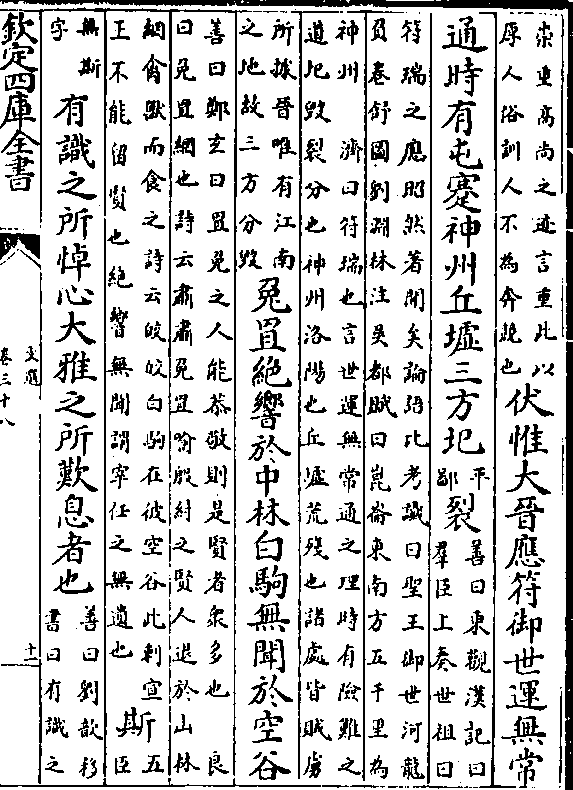 崇重高尚之迹言重此以
厚人俗訓人不為奔競也
伏惟大晉應符御世運無常
通時有屯蹇神州丘墟三方圮
平
鄙
裂
善曰東觀漢記曰
羣臣上奏世祖曰
符瑞之應昭然著聞矣論語比考讖曰聖王御世河龍
負卷舒圖劉淵林注吳都賦曰崑崙東南方五千里為
神州 濟曰符瑞也言世運無常通之理時有險難之
道圮毀裂分也神州洛陽也丘墟荒殘也諸處皆賊虜
所據晉唯有江南
之地故三方分毀
兔罝絕響於中林白駒無聞於空谷
善曰鄭玄曰罝兔之人能恭敬則是賢者衆多也 良
曰兔罝網也詩云肅肅兔罝喻殷紂之賢人退於山林
網禽獸而食之詩云皎皎白駒在彼空谷此刺宣
王不能留賢也絕響無聞謂宰任之無遺也
斯
五
臣
無斯
字
有識之所悼心大雅之所歎息者也
善曰劉歆移
書曰有識之
欽定四庫全書
文選
卷三十八
十一